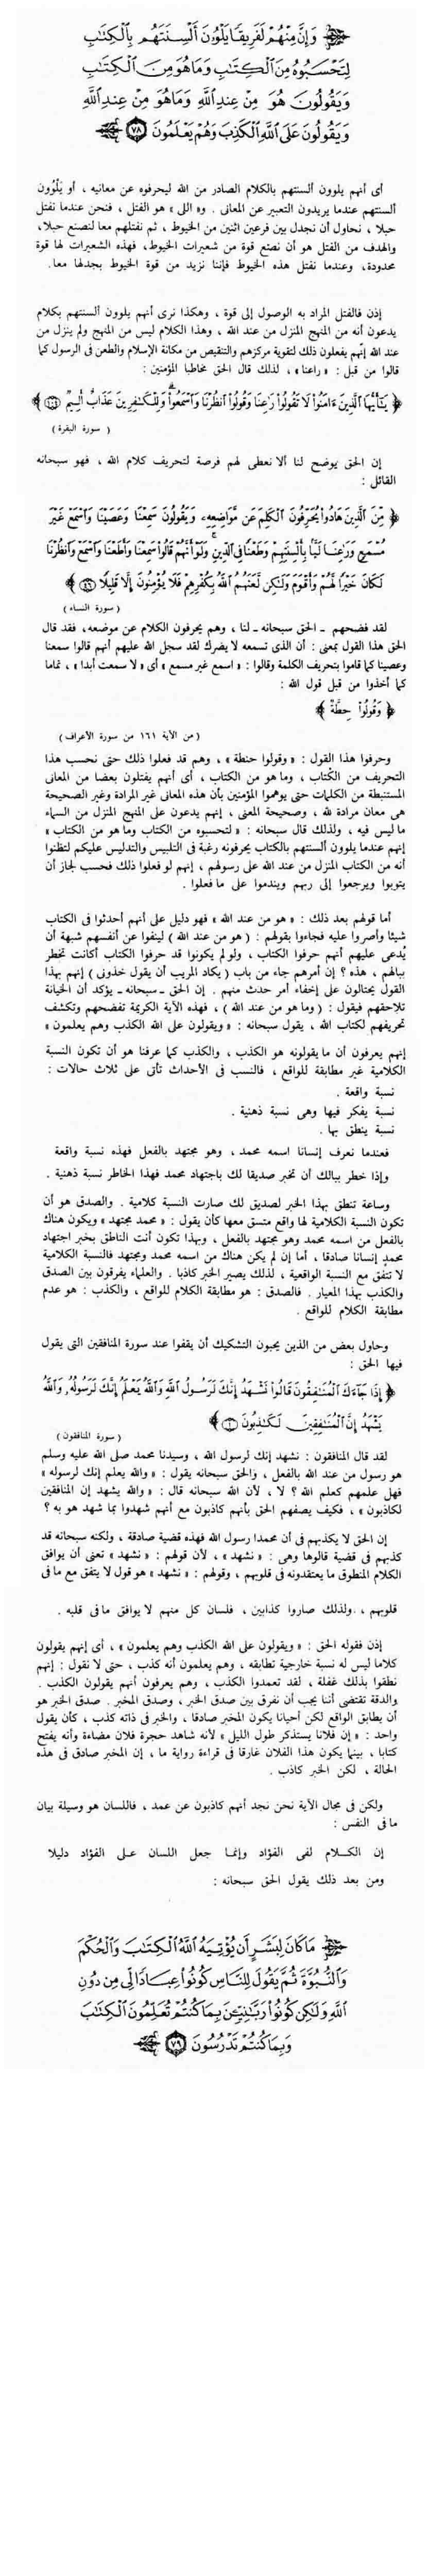 وَإِنَّ مِنْهُمْ لَفَرِيقًا يَلْوُۥنَ أَلْسِنَتَهُم بِالْكِتَٰبِ
لِتَحْسَبُوهُ مِنَ الْكِتَٰبِ وَمَا هُوَ مِنَ الْكِتَٰبِ
وَيَقُولُونَ هُوَ مِنْ عِندِ اللَّهِ وَمَا هُوَ مِنْ عِندِ اللَّهِ
وَيَقُولُونَ عَلَى اللَّهِ الْكَذِبَ وَهُمْ يَعْلَمُونَ ٧٨
أى أنهم يلوون ألسنتهم بالكلام الصادر من الله ليحرفوه عن معانيه ، أو يَلْوُون
ألسنتهم عندما يريدون التعبير عن المعانى . و« اللى » هو الفتل ، فنحن عندما نفتل
حبلا ، نحاول أن نجدل بين فرعين اثنين من الخيوط ، ثم نفتلهم معا لنصنع حبلا،
والهدف من الفتل هو أن نصنع قوة من شعيرات الخيوط، فهذه الشعيرات لها قوة
محدودة، وعندما نفتل هذه الخيوط فإننا نزيد من قوة الخيوط بجدلها معا.
إذن فالفتل المراد به الوصول إلى قوة ، وهكذا نرى أنهم يلوون ألسنتهم بكلام
يدعون أنه من المنهج المنزل من عند الله ، وهذا الكلام ليس من المنهج ولم ينزل من
عند الله إنهم يفعلون ذلك لتقوية مركزهم والتنقيص من مكانة الإسلام والطعن فى الرسول كما
قالوا من قبل : « راعنا » ، لذلك قال الحق مخاطبا المؤمنين :
﴿ يَٰٓأَيُّهَا الَّذِينَ ءَامَنُوا۟ لَا تَقُولُوا۟ رَٰعِنَا وَقُولُوا۟ انظُرْنَا وَاسْمَعُوا۟ ۗ وَلِلْكَٰفِرِينَ عَذَابٌ أَلِيمٌ ١٠٤ ﴾
( سورة البقرة )
إن الحق يوضح لنا ألا نعطى لهم فرصة لتحريف كلام الله ، فهو سبحانه
القائل :
﴿ مِّنَ الَّذِينَ هَادُوا۟ يُحَرِّفُونَ الْكَلِمَ عَن مَّوَاضِعِهِۦ وَيَقُولُونَ سَمِعْنَا وَعَصَيْنَا وَاسْمَعْ غَيْرَ
مُسْمَعٍ وَرَٰعِنَا لَيًّۢا بِأَلْسِنَتِهِمْ وَطَعْنًا فِى الدِّينِ ۚ وَلَوْ أَنَّهُمْ قَالُوا۟ سَمِعْنَا وَأَطَعْنَا وَاسْمَعْ وَانظُرْنَا
لَكَانَ خَيْرًا لَّهُمْ وَأَقْوَمَ وَلَٰكِن لَّعَنَهُمُ اللَّهُ بِكُفْرِهِمْ فَلَا يُؤْمِنُونَ إِلَّا قَلِيلًا ٤٦ ﴾
( سورة النساء )
لقد فضحهم ـ الحق سبحانه ـ لنا ، وهم يحرفون الكلام عن موضعه، فقد قال
الحق هذا القول بمعنى : أن الذى تسمعه لا يضرك لقد سجل الله عليهم أنهم قالوا سمعنا
وعصينا كما قاموا بتحريف الكلمة وقالوا : « اسمع غير مسمع » أى « لا سمعت أبدا » ، تماما
كما أخذوا من قبل قول الله :
﴿ وَقُولُوا۟ حِطَّةٌ ﴾
( من الآية ١٦١ من سورة الأعراف )
وحرفوا هذا القول : « وقولوا حنطة » ، وهم قد فعلوا ذلك حتى نحسب هذا
التحريف من الكتاب ، وما هو من الكتاب ، أى أنهم يفتلون بعضا من المعانى
المستنبطة من الكلمات حتى يوهموا المؤمنين بأن هذه المعانى غير المرادة وغير الصحيحة
هى معان مرادة لله ، وصحيحة المعنى ، إنهم يدعون على المنهج المنزل من السماء
ما ليس فيه ، ولذلك قال سبحانه : « لتحسبوه من الكتاب وما هو من الكتاب »
إنهم عندما يلوون ألسنتهم بالكتاب يحرفونه رغبة فى التلبيس والتدليس عليكم لتظنوا
أنه من الكتاب المنزل من عند الله على رسولهم ، إنهم لو فعلوا ذلك فحسب لجاز أن
يتوبوا ويرجعوا إلى ربهم ويندموا على ما فعلوا .
أما قولهم بعد ذلك : « هو من عند الله » فهو دليل على أنهم أحدثوا فى الكتاب
شيئا وأصروا عليه فجاءوا بقولهم : ( هو من عند الله ) لينفوا عن أنفسهم شبهة أن
يُدعى عليهم أنهم حرفوا الكتاب ، ولو لم يكونوا قد حرفوا الكتاب أكانت تخطر
ببالهم ، هذه ؟ إن أمرهم جاء من باب ( يكاد المريب أن يقول خذونى ) إنهم بهذا
القول يحتالون على إخفاء أمر حدث منهم . إن الحق ـ سبحانه ـ يؤكد أن الخيانة
تلاحقهم فيقول : ( وما هو من عند الله ) ، فهذه الآية الكريمة تفضحهم وتكشف
تحريفهم لكتاب الله ، يقول سبحانه : « ويقولون على الله الكذب وهم يعلمون »
إنهم يعرفون أن ما يقولونه هو الكذب ، والكذب كما عرفنا هو أن تكون النسبة
الكلامية غير مطابقة للواقع ، فالنسب فى الأحداث تأتى على ثلاث حالات :
نسبة واقعة .
نسبة يفكر فيها وهى نسبة ذهنية .
نسبة ينطق بها .
فعندما نعرف إنسانا اسمه محمد ، وهو مجتهد بالفعل فهذه نسبة واقعة
وإذا خطر ببالك أن تخبر صديقا لك باجتهاد محمد فهذا الخاطر نسبة ذهنية .
وساعة تنطق بهذا الخبر لصديق لك صارت النسبة كلامية . والصدق هو أن
تكون النسبة الكلامية لها واقع متسق معها كأن يقول : « محمد مجتهد » ويكون هناك
بالفعل من اسمه محمد وهو مجتهد بالفعل ، وبهذا تكون أنت الناطق بخبر اجتهاد
محمدٍ إنسانا صادقا ، أما إن لم يكن هناك من اسمه محمد ومجتهد فالنسبة الكلامية
لا تتفق مع النسبة الواقعية ، لذلك يصير الخبر كاذبا . والعلماء يفرقون بين الصدق
والكذب بهذا المعيار . فالصدق : هو مطابقة الكلام للواقع ، والكذب : هو عدم
مطابقة الكلام للواقع .
وحاول بعض من الذين يحبون التشكيك أن يقفوا عند سورة المنافقين التى يقول
فيها الحق :
﴿ إِذَا جَآءَكَ الْمُنَٰفِقُونَ قَالُوا۟ نَشْهَدُ إِنَّكَ لَرَسُولُ اللَّهِ وَاللَّهُ يَعْلَمُ إِنَّكَ لَرَسُولُهُۥ وَاللَّهُ
يَشْهَدُ إِنَّ الْمُنَٰفِقِينَ لَكَٰذِبُونَ ١ ﴾
( سورة المنافقون )
لقد قال المنافقون : نشهد إنك لرسول الله ، وسيدنا محمد صلى الله عليه وسلم
هو رسول من عند الله بالفعل ، والحق سبحانه يقول : « والله يعلم إنك لرسوله »
فهل علمهم كعلم الله ؟ لا ، لأن الله سبحانه قال : « والله يشهد إن المنافقين
لكاذبون » ، فكيف يصفهم الحق بأنهم كاذبون مع أنهم شهدوا بما شهد هو به ؟
إن الحق لا يكذبهم فى أن محمدا رسول الله فهذه قضية صادقة ، ولكنه سبحانه قد
كذبهم فى قضية قالوها وهى : « نشهد » ، لأن قولهم : « نشهد » تعنى أن يوافق
الكلام المنطوق ما يعتقدونه فى قلوبهم ، وقولهم : « نشهد » هو قول لا يتفق مع ما فى
قلوبهم ، ولذلك صاروا كذابين ، فلسان كل منهم لا يوافق ما فى قلبه .
إذن فقوله الحق : « ويقولون على الله الكذب وهم يعلمون » ، أى إنهم يقولون
كلاما ليس له نسبة خارجية تطابقه ، وهم يعلمون أنه كذب ، حتى لا نقول : إنهم
نطقوا بذلك غفلة ، لقد تعمدوا الكذب ، وهم يعرفون أنهم يقولون الكذب .
والدقة تقتضى أننا يجب أن نفرق بين صدق الخبر ، وصدق المخبر . صدق الخبر هو
أن يطابق الواقع لكن أحيانا يكون المخبر صادقا ، والخبر فى ذاته كذب ، كأن يقول
واحد : « إن فلانا يستذكر طول الليل » لأنه شاهد حجرة فلان مضاءة وأنه يفتح
كتابا ، بينما يكون هذا الفلان غارقا فى قراءة رواية ما ، إن المخبر صادق فى هذه
الحالة ، لكن الخبر كاذب .
ولكن فى مجال الآية نحن نجد أنهم كاذبون عن عمد ، فاللسان هو وسيلة بيان
ما فى النفس :
إن الكلام لفى الفؤاد وإنما جعل اللسان على الفؤاد دليلا
ومن بعد ذلك يقول الحق سبحانه :
مَا كَانَ لِبَشَرٍ أَن يُؤْتِيَهُ اللَّهُ الْكِتَٰبَ وَالْحُكْمَ
وَالنُّبُوَّةَ ثُمَّ يَقُولَ لِلنَّاسِ كُونُوا۟ عِبَادًا لِّى مِن دُونِ
اللَّهِ وَلَٰكِن كُونُوا۟ رَبَّٰنِيِّۦنَ بِمَا كُنتُمْ تُعَلِّمُونَ الْكِتَٰبَ
وَبِمَا كُنتُمْ تَدْرُسُونَ ٧٩